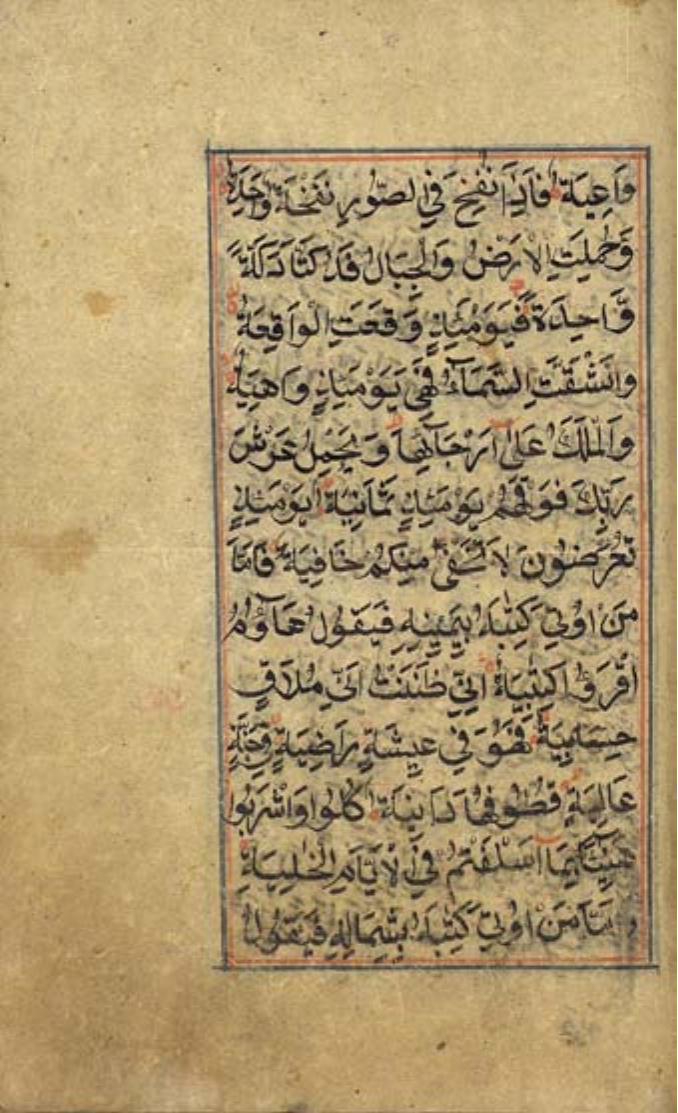 وَاعِيَةٌ فَاِذَا نُفِخَ فِي الصُّوْرِ نَفْخَةٌ وَّاحِدَةٌ
وَّحُمِلَتِ الْاَرْضُ وَالْجِبَالُ فَدُكَّتَا دَكَّةً
وَّاحِدَةً فَيَوْمَئِذٍ وَّقَعَتِ الْوَاقِعَةُ
وَانْشَقَّتِ السَّمَآءُ فَهِيَ يَوْمَئِذٍ وَاهِيَةٌ
وَالْمَلَكُ عَلٰى اَرْجَآئِهَا وَيَحْمِلُ عَرْشَ
رَبِّكَ فَوْقَهُمْ يَوْمَئِذٍ ثَمَانِيَةٌ يَوْمَئِذٍ
تُعْرَضُوْنَ لَا تَخْفٰى مِنْكُمْ خَافِيَةٌ فَاَمَّا
مَنْ اُوْتِيَ كِتٰبَهُ بِيَمِيْنِهِ فَيَقُوْلُ هَآؤُمُ
اقْرَءُوْا كِتٰبِيَهْ اِنِّيْ ظَنَنْتُ اَنِّيْ مُلَاقٍ
حِسَابِيَهْ فَهُوَ فِيْ عِيْشَةٍ رَاضِيَةٍ فِيْ جَنَّةٍ
عَالِيَةٍ قُطُوْفُهَا دَانِيَةٌ كُلُوْا وَاشْرَبُوْا
هَنِيْئًا بِمَا اَسْلَفْتُمْ فِي الْاَيَّامِ الْخَالِيَةِ
وَاَمَّا مَنْ اُوْتِيَ كِتٰبَهُ بِشِمَالِهِ فَيَقُوْلُ